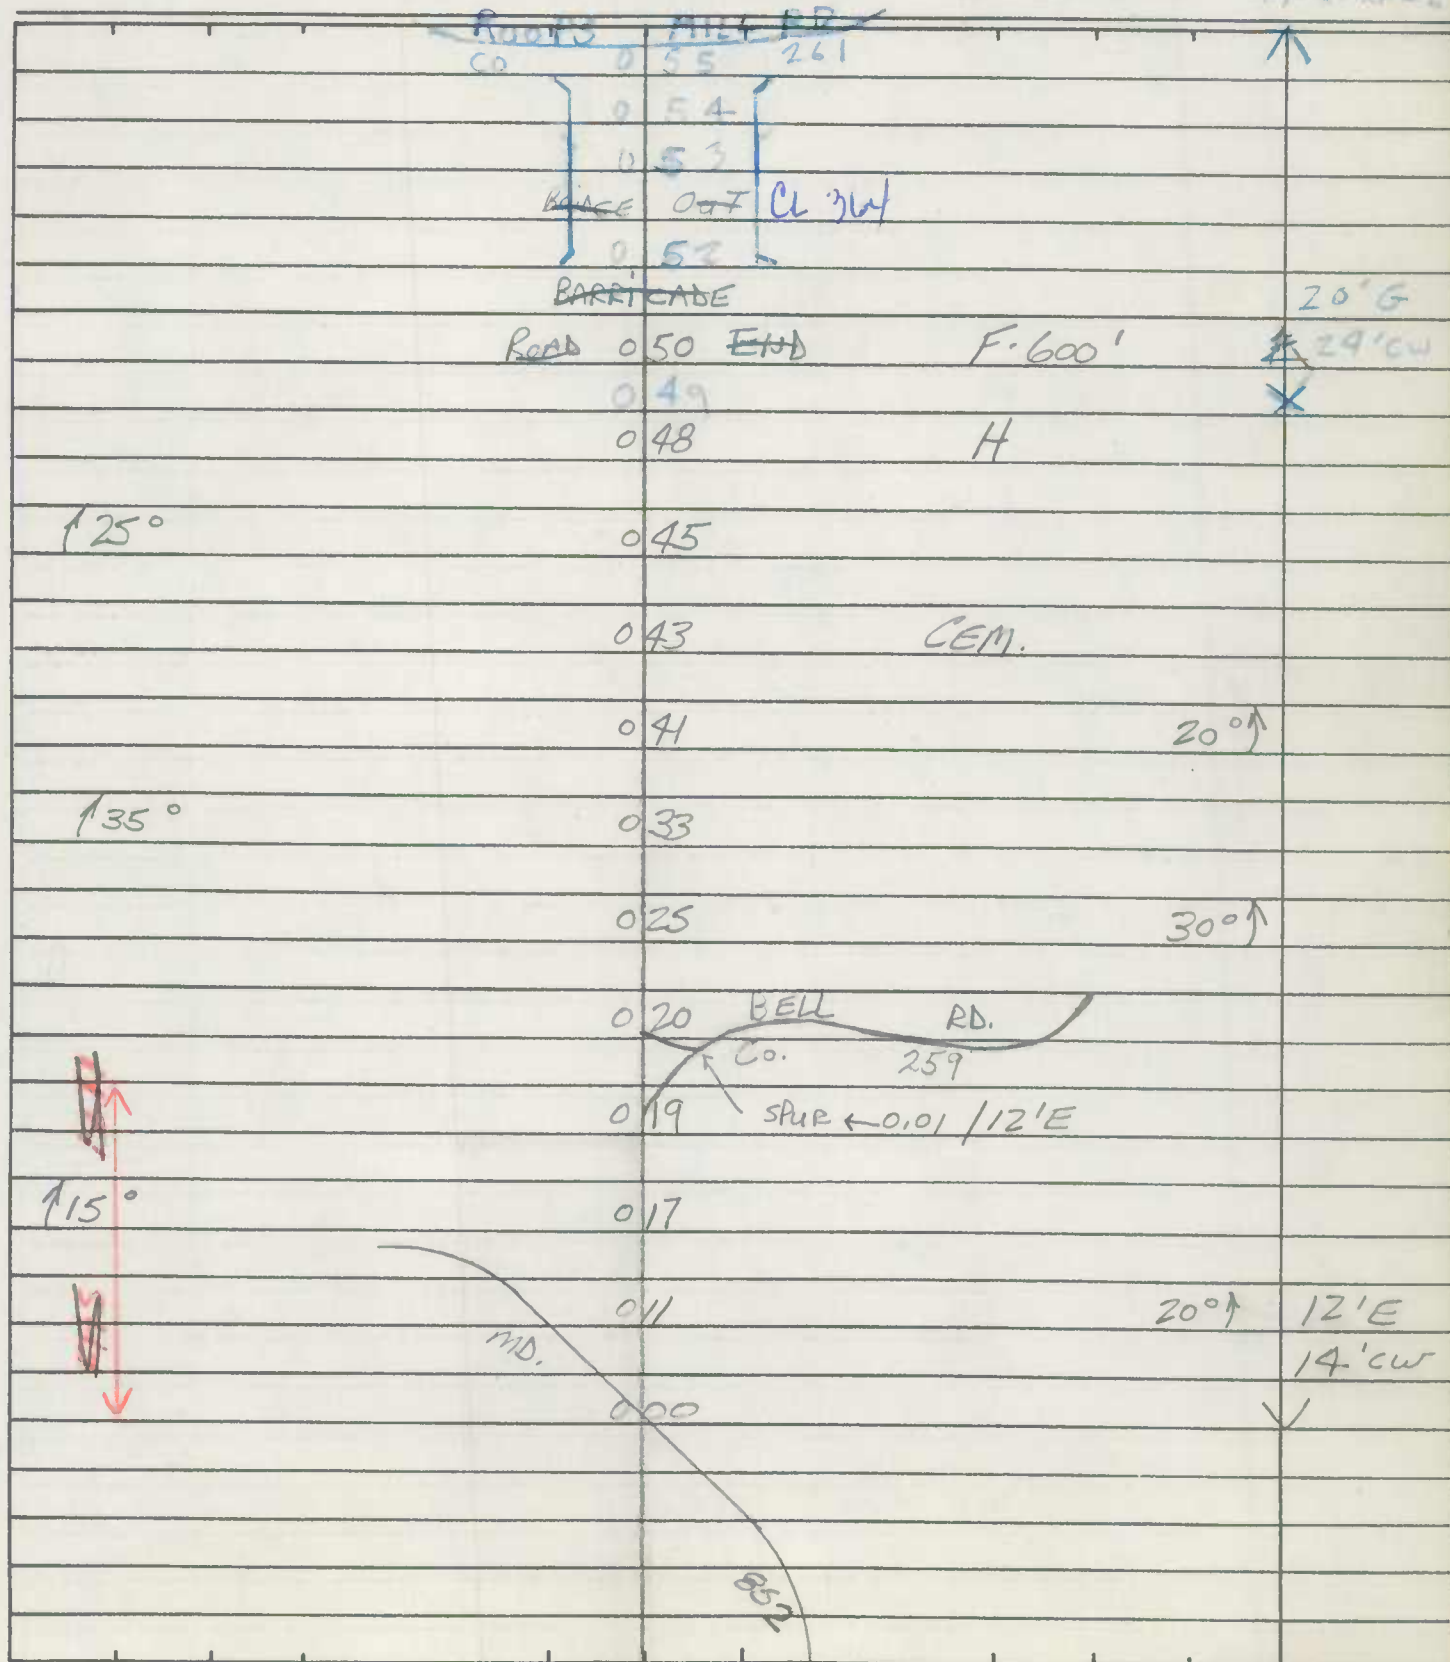 ROOPS MILL RD
CO 0 55 261
0 54
0 53
BRIDGE OUT CL 364
0 52
BARRICADE
20' G
ROAD 0 50 END F. 600' 24' CW
0 49
0 48 H
25° 0 45
0 43 CEM.
0 41 20°
35° 0 33
0 25 30°
0 20 BELL RD.
Co. 259
0 19 SPUR ← 0.01 / 12'E
15° 0 17
0 11 20° 12'E
MD. 14' CW
0 00
852